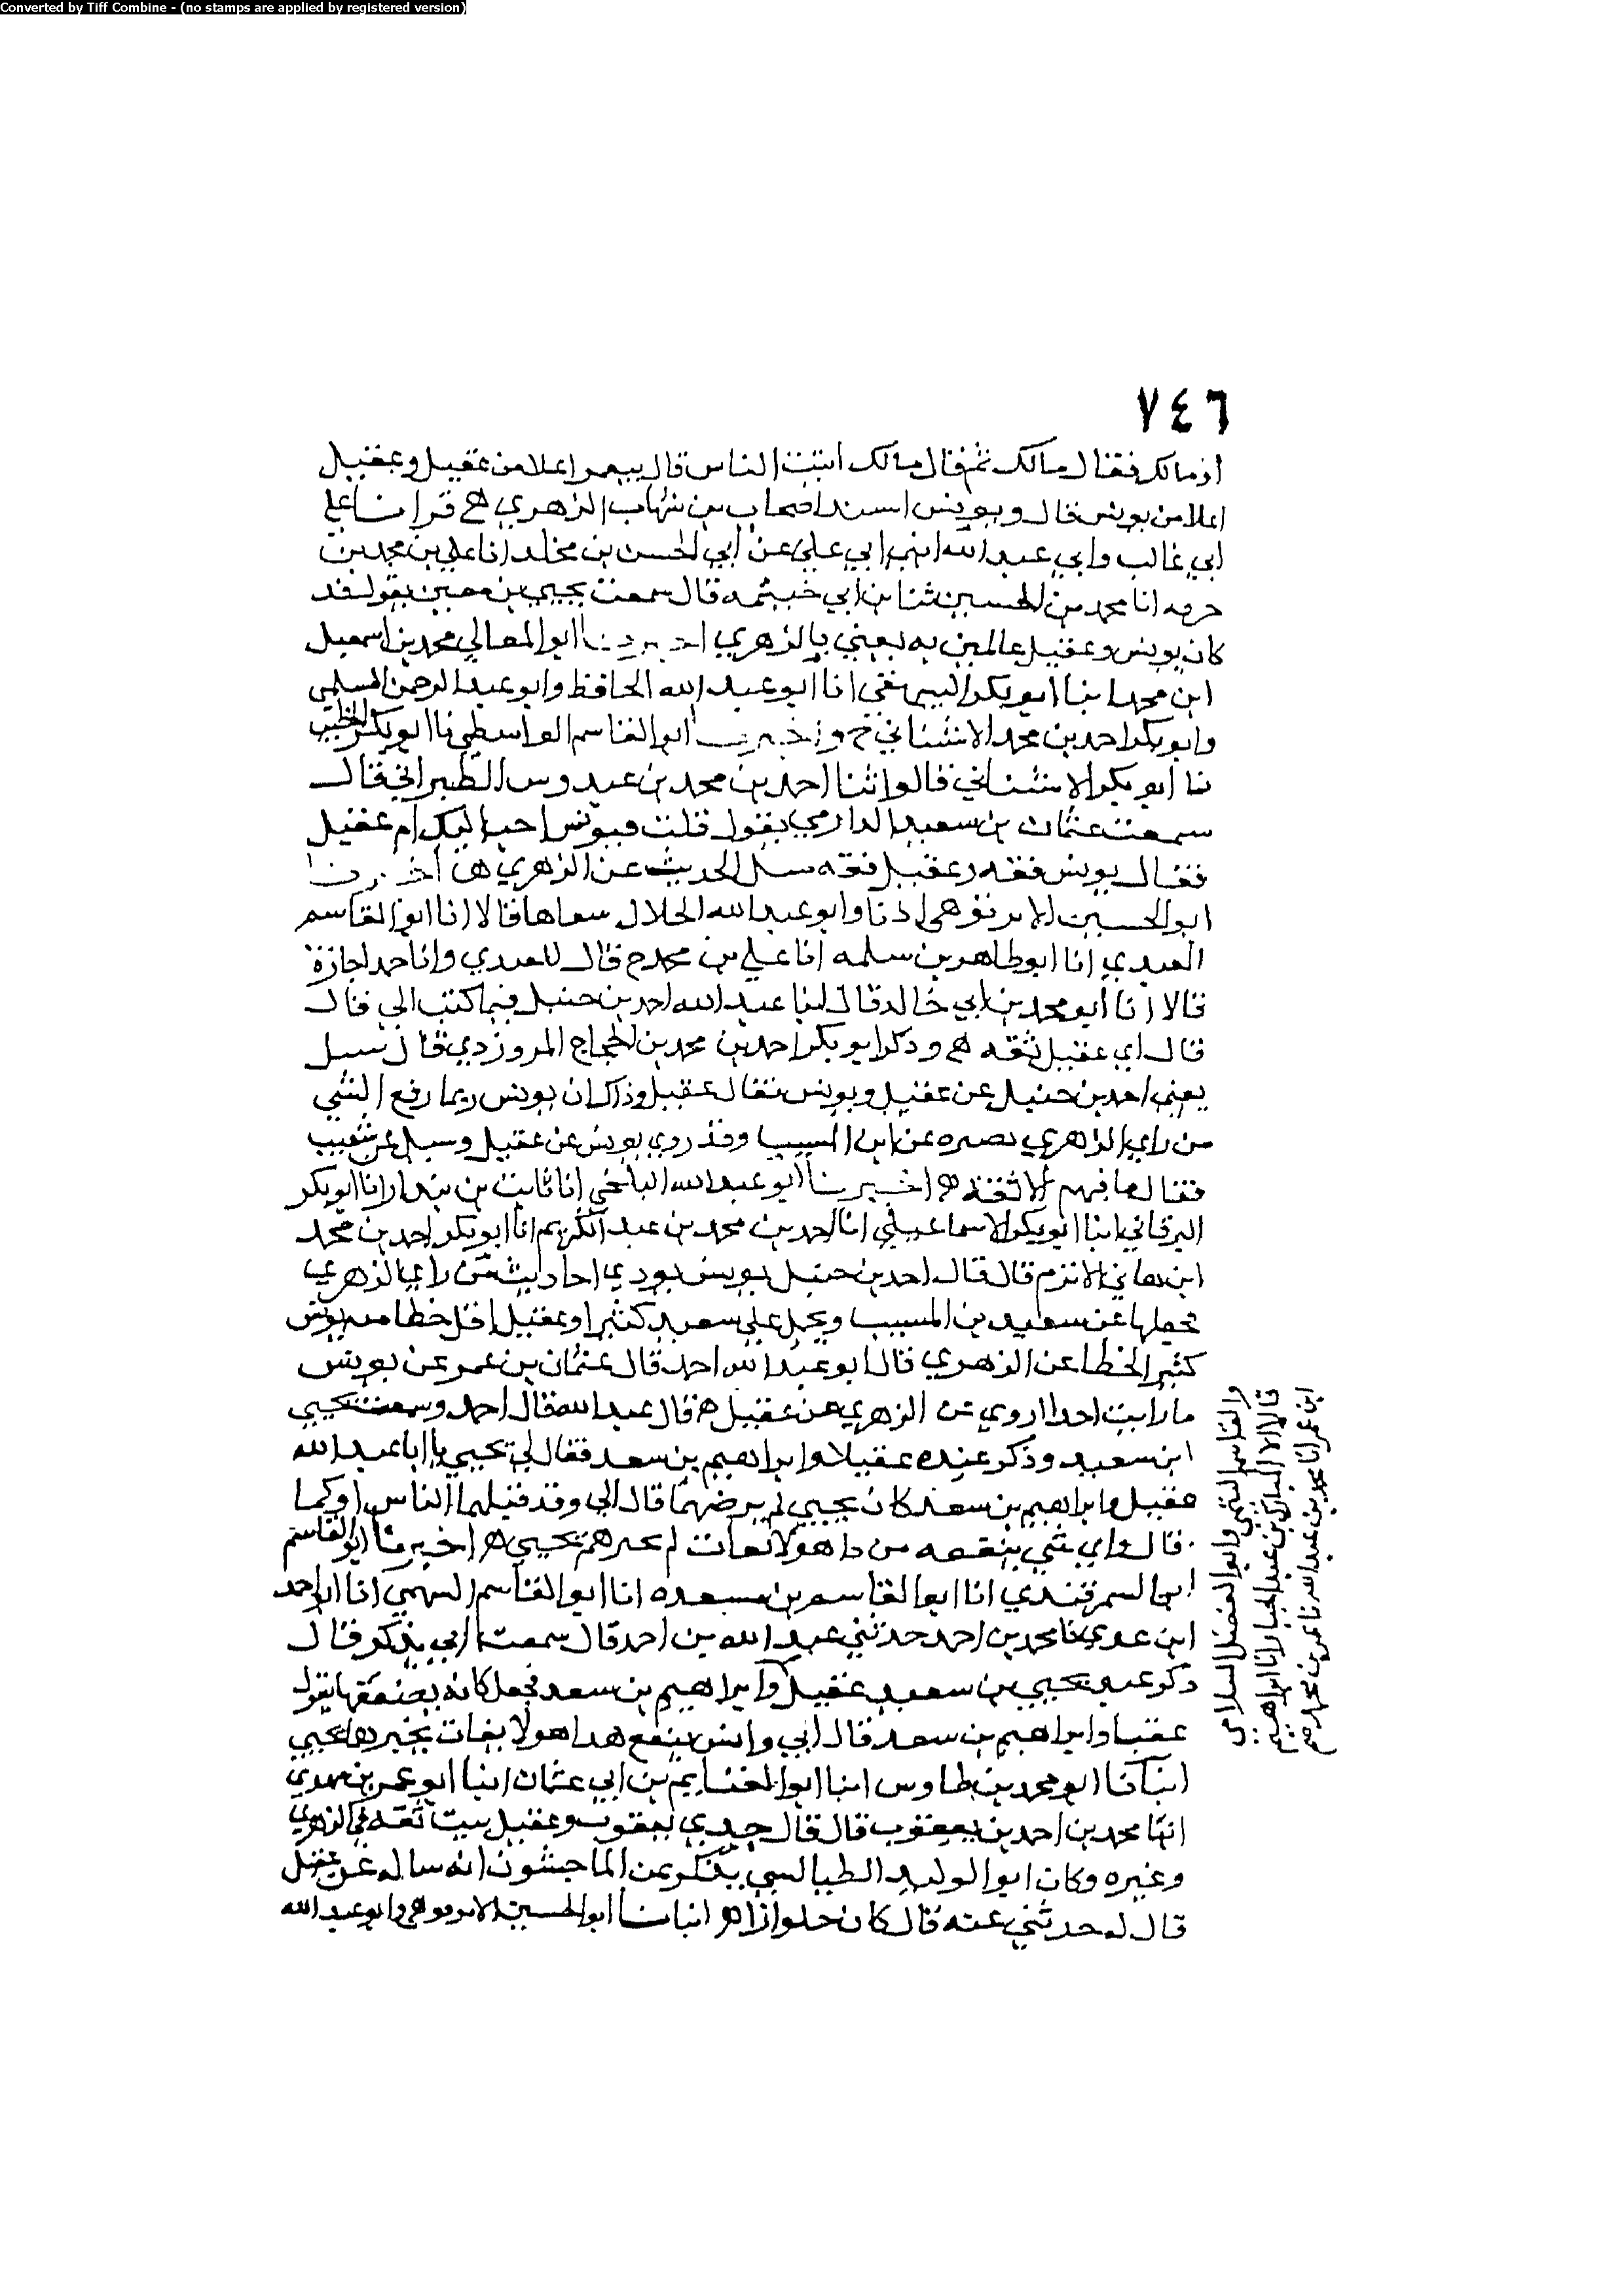 Converted by Tiff Combine - (no stamps are applied by registered version)
٧٤٦
اذ مالك فقال مالك ثم قال مالك اثبت الناس قال معمر اعلا من عقيل وعقيل
اعلا من يونس قال ويونس اسند اصحاب بن شهاب الزهري قرانا على
ابي غالب وابي عبد الله ابني ابي علي عن ابي الحسن بن مخلد انا علي بن محمد بن
خزفه انا محمد بن الحسين ثنا بن ابي خيثمه قال سمعت يحيى بن معين يقول قد
كان يونس وعقيل عالمين به يعني بالزهري اخبرنا ابوا المعالي محمد بن اسمعيل
ابن محمد انبا ابو بكر البيهقي انا ابو عبد الله الحافظ وابو عبد الرحمن السلمي
وابو بكر احمد بن محمد الاشناني ح واخبرنا ابوا القاسم الواسطي نا ابو بكر الخطيب
نا ابو بكر الاشناني قالوا ثنا احمد بن محمد بن عبدوس الطبراني قال
سمعت عثمان بن سعيد الدارمي يقول قلت فيونس احب اليك ام عقيل
فقال يونس ثقه وعقيل ثقه الحديث عن الزهري اخبرنا
ابو الحسين الابرقوهي اذنا وابو عبد الله الخلال قالا انا ابوا القاسم
العبدي انا ابو طاهر بن سلمه انا علي بن محمد ح قال العبدي وانا حمد اجازة
قالا انا ابو محمد بن ابي قال انبا عبد الله احمد بن حنبل فيما كتب الي قال
قال ابي عقيل ثقه وذكر ابو بكر احمد بن محمد بن الحجاج المروزي قال سيل
يعني احمد بن حنبل عن عقيل ويونس فقال عقيل وذاك ان يونس ربما رفع الشي
من راي الزهري يصيره عن ابن المسيب وقد روى يونس عن عقيل وسيل عن شعيب
فقال ما فيهم الا ثقه اخبرنا ابو عبد الله البلخي انا ثابت بن بندار انا ابو بكر
البرقاني انبا ابو بكر الاسماعيلي انا احمد بن محمد بن عبد الكريم انا ابو بكر احمد بن محمد
ابن هاني الاثرم قال قال احمد بن حنبل يونس يودي احاديث من راي الزهري
يجعلها عن سعيد بن المسيب ويحمل على سعيد كثيرا وعقيل اقل خطا منه يونس
كثير الخطا عن الزهري قال ابو عبد الله احمد قال عثمان بن عمر عن يونس
ما رايت احدا اروي عن الزهري من عقيل قال عبد الله فقال احمد وسمعت يحيى
ابن سعيد وذكر عنده عقيلا وابراهيم بن سعد فقال لي يحيى يا ابا عبد الله
عقيل وابراهيم بن سعد كان يحيى لم يرضهما قال ابي وقد قبلهما الناس او كما
قال واي شي ينفعه من ذا هولا ثقات لم يخبرهم يحيى اخبرنا ابو القاسم
ابن السمرقندي انا ابوا القاسم بن مسعده انا ابوا القاسم السهمي انا ابو احمد
ابن عدي نا محمد بن احمد حدثني عبد الله بن احمد قال سمعت ابي يذكر قال
ذكر عند يحيى بن سعيد عقيل وابراهيم بن سعد فجعل كانه يضعفهما يقول
عقيل وابراهيم بن سعد قال ابي وايش ينفع هذا هولا ثقات لم يخبرهما يحيى
انبانا ابو محمد بن طاوس انبا ابوا الغنايم بن ابي عثمان انبا ابو عمر بن مهدي
انبا محمد بن احمد بن يعقوب قال قال جدي يعقوب وعقيل ثبت ثقه في الزهري
وغيره وكان ابوا الوليد الطيالسي يذكر عن الماجشون انه ساله عن عقيل
قال له حدثني عنه قال كان جلوازا انبانا ابو الحسين الابرقوهي وابو عبد الله
والقاسم التيمي وابوا الفضل السلامي
قالا انا المبارك بن عبد الجبار انا ابراهيم
ابن عمر انا محمد بن عبد الله نا عمر بن محمد